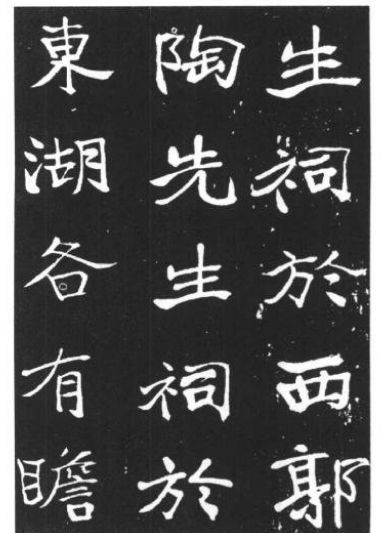 生祠於西郭
陶先生祠於
東湖各有瞻